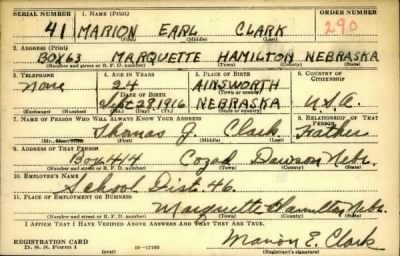 SERIAL NUMBER 1. NAME (Print) ORDER NUMBER
41 MARION EARL CLARK 290
(First) (Middle) (Last)
2. ADDRESS (Print)
BOX 63 MARQUETTE HAMILTON NEBRASKA
(Number and street or R. F. D. number) (Town) (County) (State)
3. TELEPHONE 4. AGE IN YEARS 5. PLACE OF BIRTH 6. COUNTRY OF CITIZENSHIP
None 24 AINSWORTH
DATE OF BIRTH
Sept 28 1916 NEBRASKA U.S.A.
(Exchange) (Number) (Mo.) (Day) (Yr.) (State or country)
7. NAME OF PERSON WHO WILL ALWAYS KNOW YOUR ADDRESS 8. RELATIONSHIP OF THAT PERSON
Thomas J. Clark Father
(First) (Middle) (Last)
9. ADDRESS OF THAT PERSON
Box 414 Cozad Dawson Nebr.
(Number and street or R. F. D. number) (Town) (County) (State)
10. EMPLOYER'S NAME
School Dist. 46.
11. PLACE OF EMPLOYMENT OR BUSINESS
Marquette Hamilton Nebr.
(Number and street or R. F. D. number) (Town) (County) (State)
I AFFIRM THAT I HAVE VERIFIED ABOVE ANSWERS AND THAT THEY ARE TRUE.
REGISTRATION CARD
D. S. S. Form 1 Marion E. Clark
(Registrant's signature)